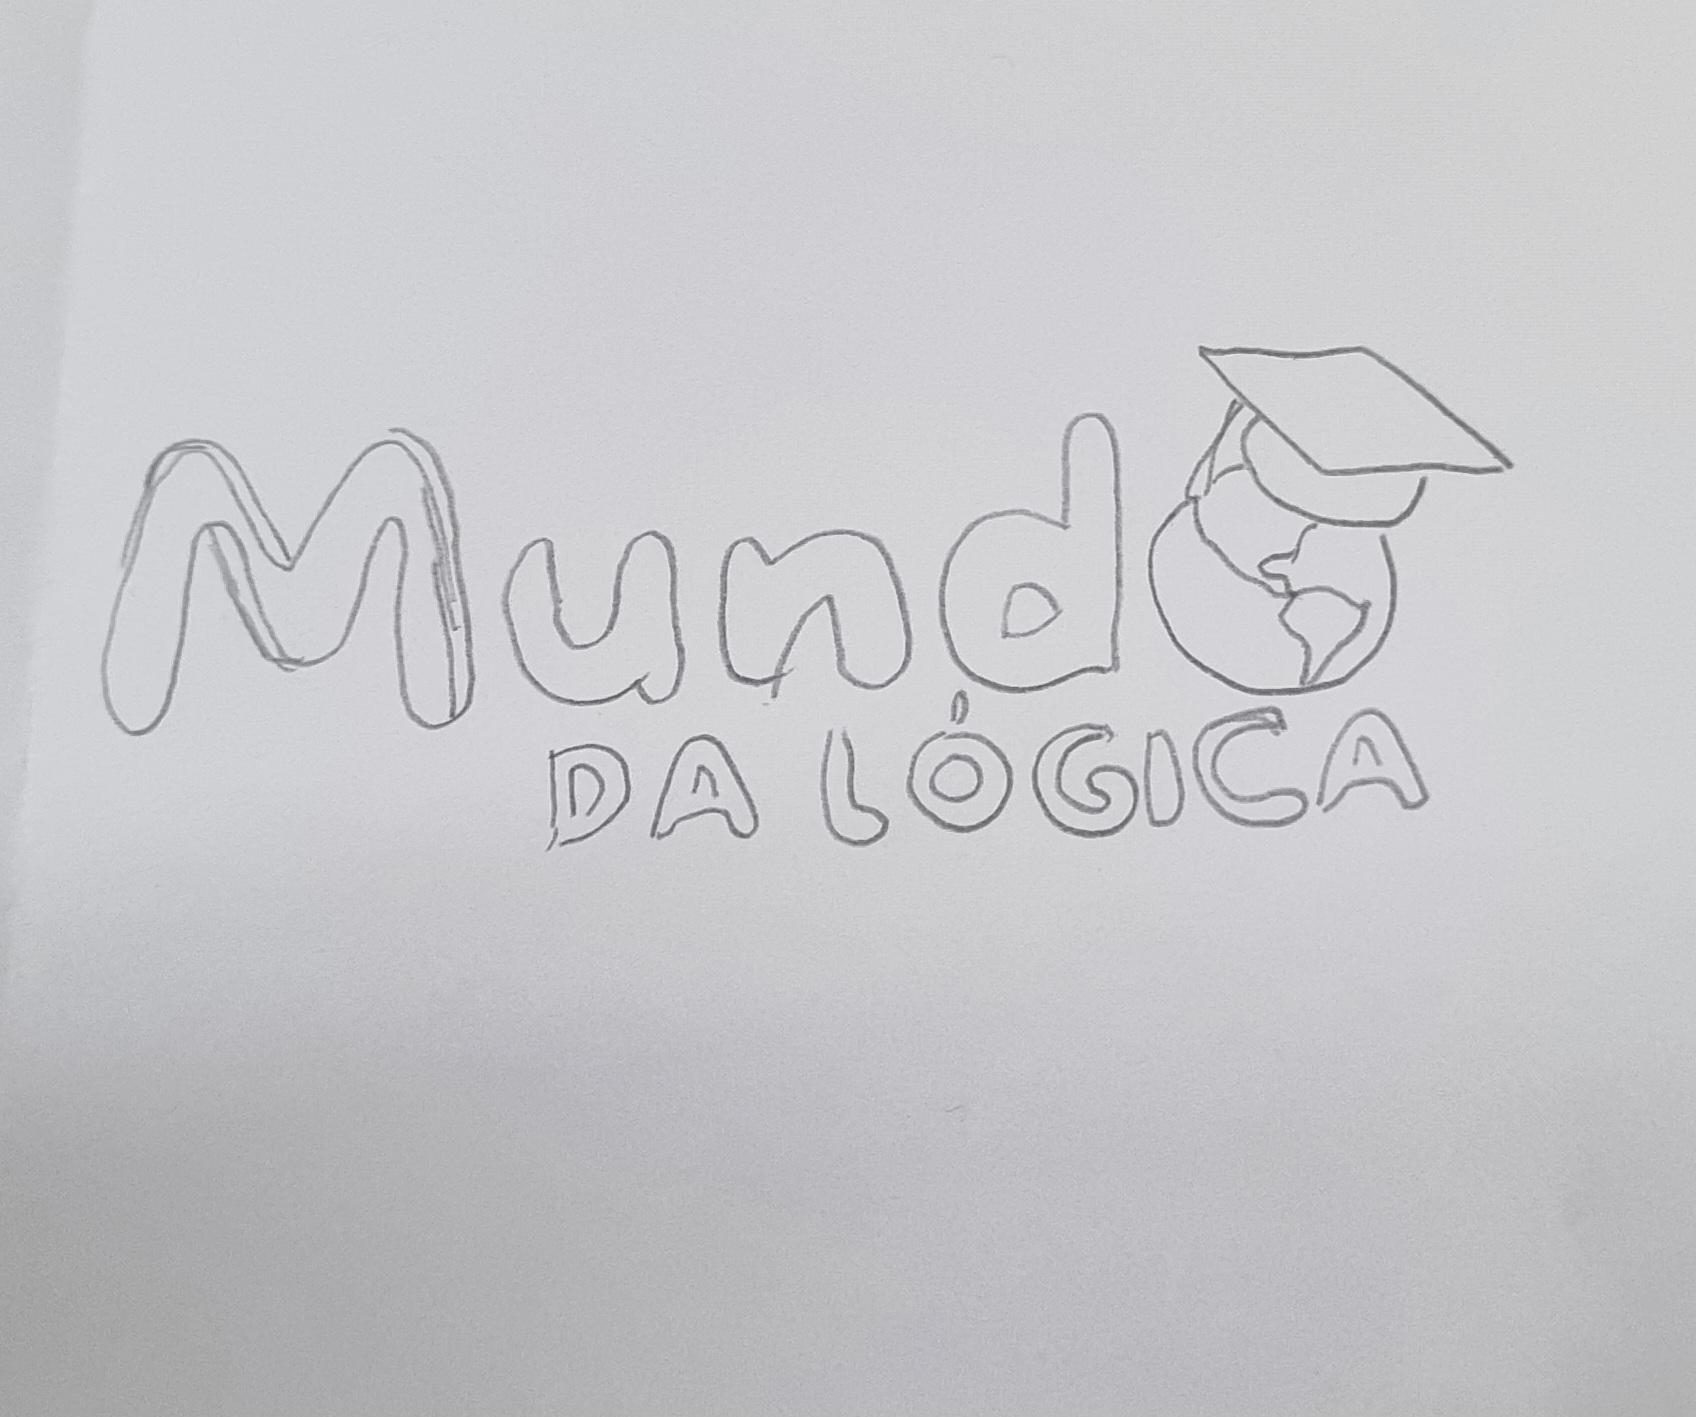 Mundo
DA LÓGICA